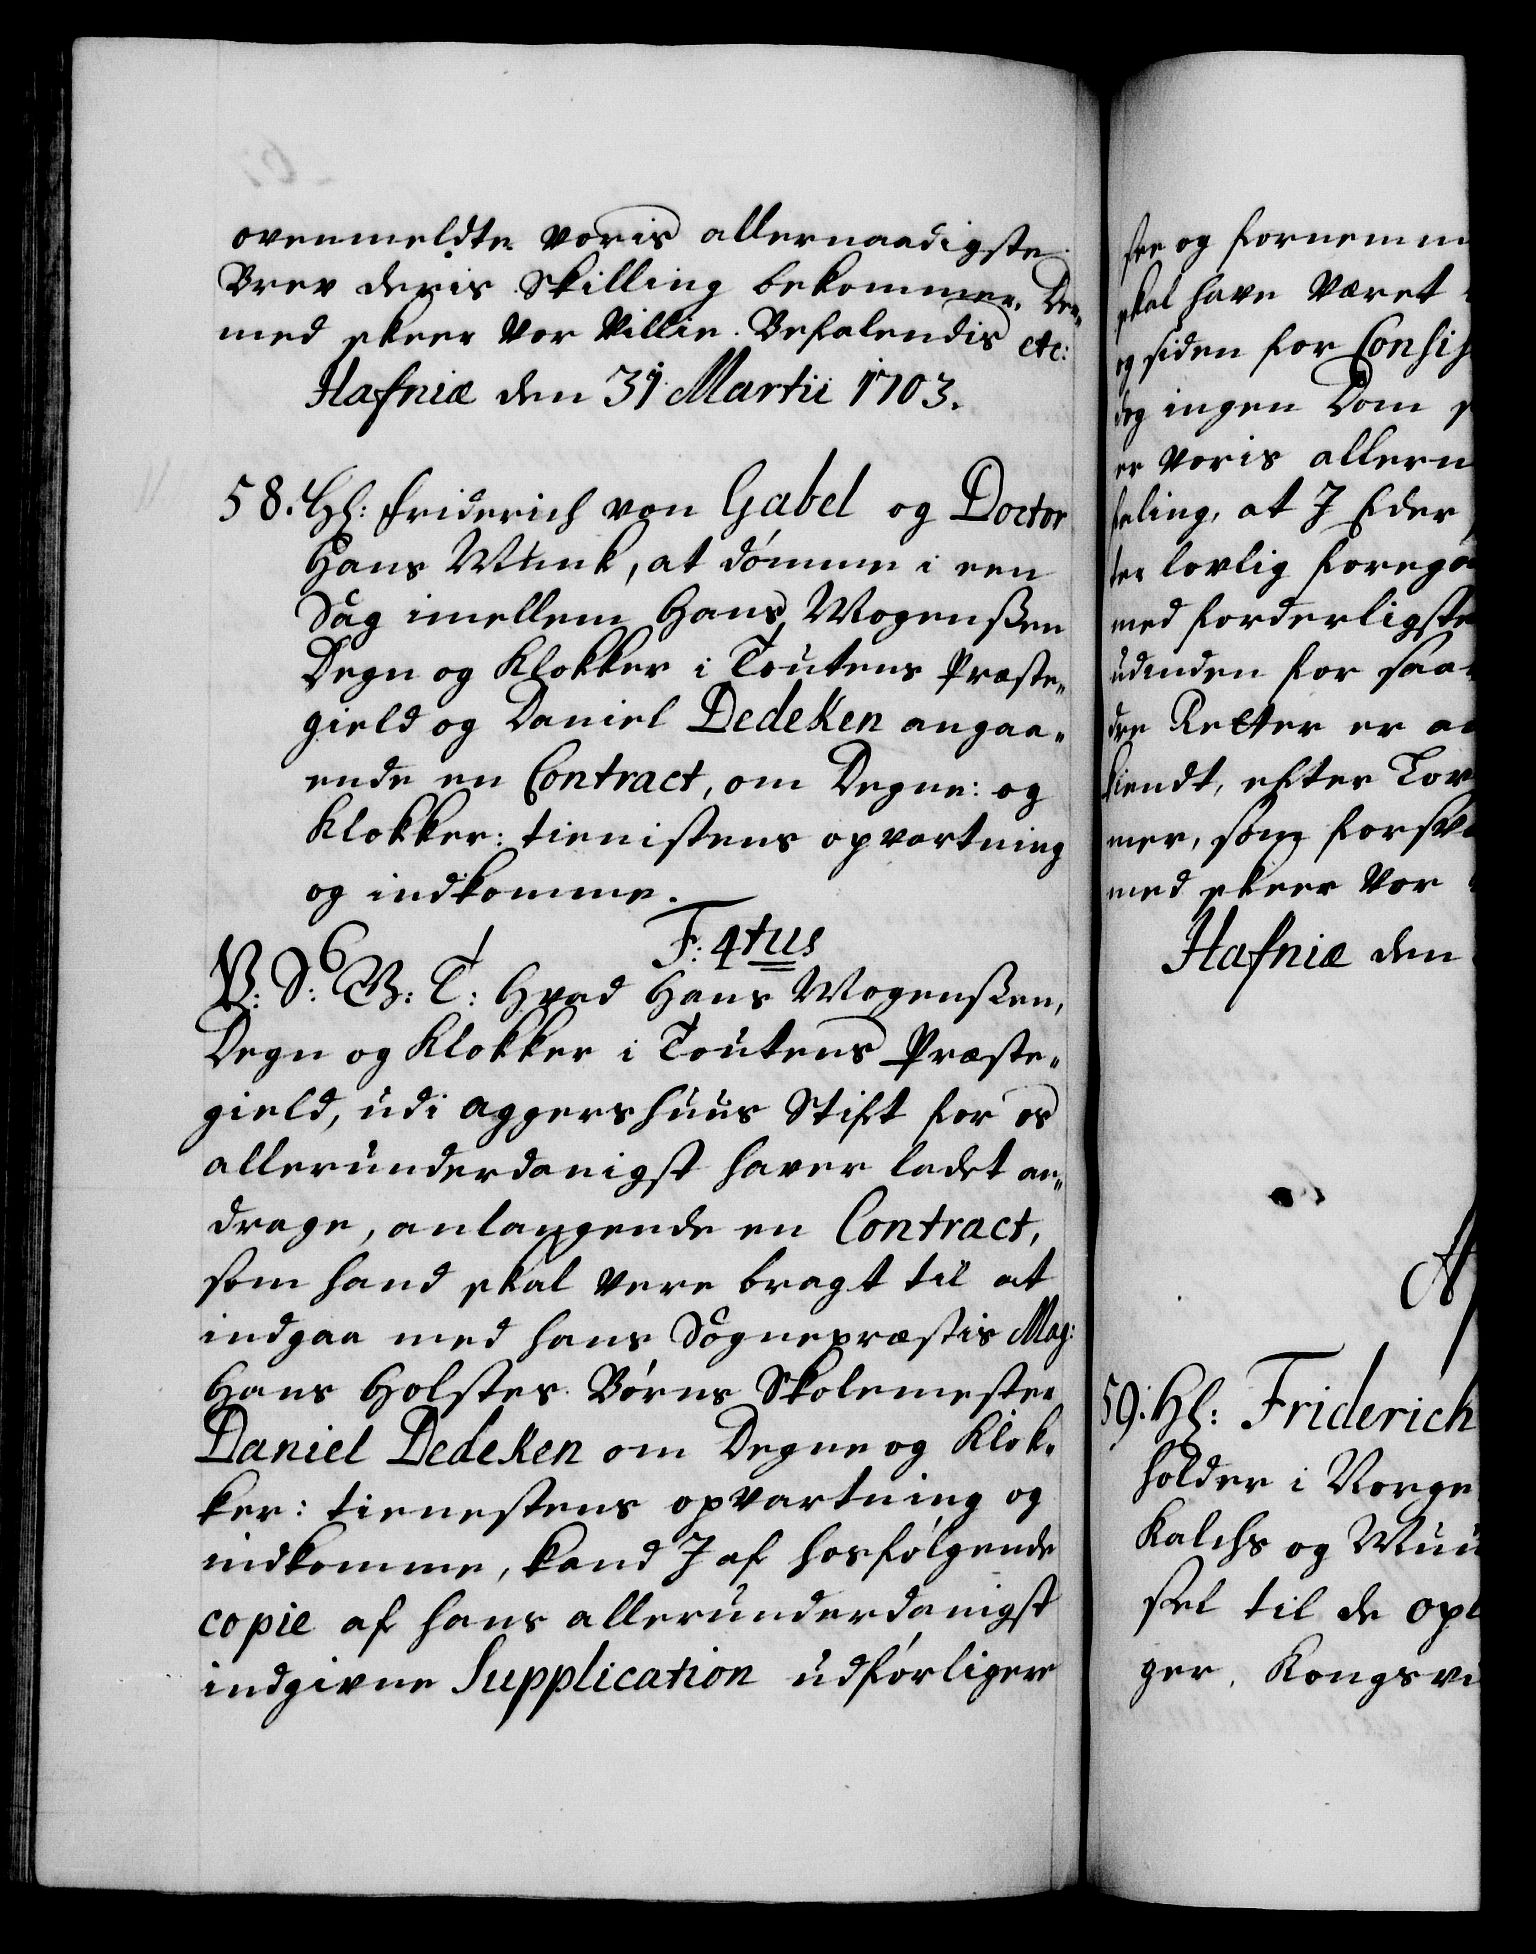 ovenmeldte voris allernaadigste
Brev deris Skilling bekommer. Der„
med skeer vor Villie. Befalendis etc:
Hafniæ den 31 Martii 1703.
58. Hl: Friderich von Gabel og Doctor
Hans Munk, at dømme i een
Sag imellem Hans Mogenßen
Degn og Klokker i Toutens Præste„
gield og Daniel Dedeken angaa„
ende en Contract, om Degne: og
Klokker: tienistens opvartning
og indkomme.
F: 4tus
V: S: G: B: T: Hvad Hans Mogenßen,
Degn og Klokker i Toutens Præste„
gield, udi Aggershuus Stift for os
allerunderdanigst haver ladet an„
drage, anlangende en Contract,
som hand skal vere bragt til at
indgaa med hans Sognepræstis Mag:
Hans Holstes Børns Skolemester
Daniel Dedeken om Degne og Klok„
ker: tienestens opvartning og
indkomme, kand I af hosfølgende
copie af hans allerunderdanigst
indgivne Supplication udførligere
see og fornemm
skal have været
og siden for Consis
dog ingen Dom
er voris allern
feling, at I Eder
ter lovlig forega
med forderligste
udinden for saa
dre Retter er
kiendt, efter Lov
mer, som forsv
med skeer vor
Hafniæ den
59. Hl: Friderich
holder i Norge
Kalchs og Muu
sel til de opl
ger, Kongsvi